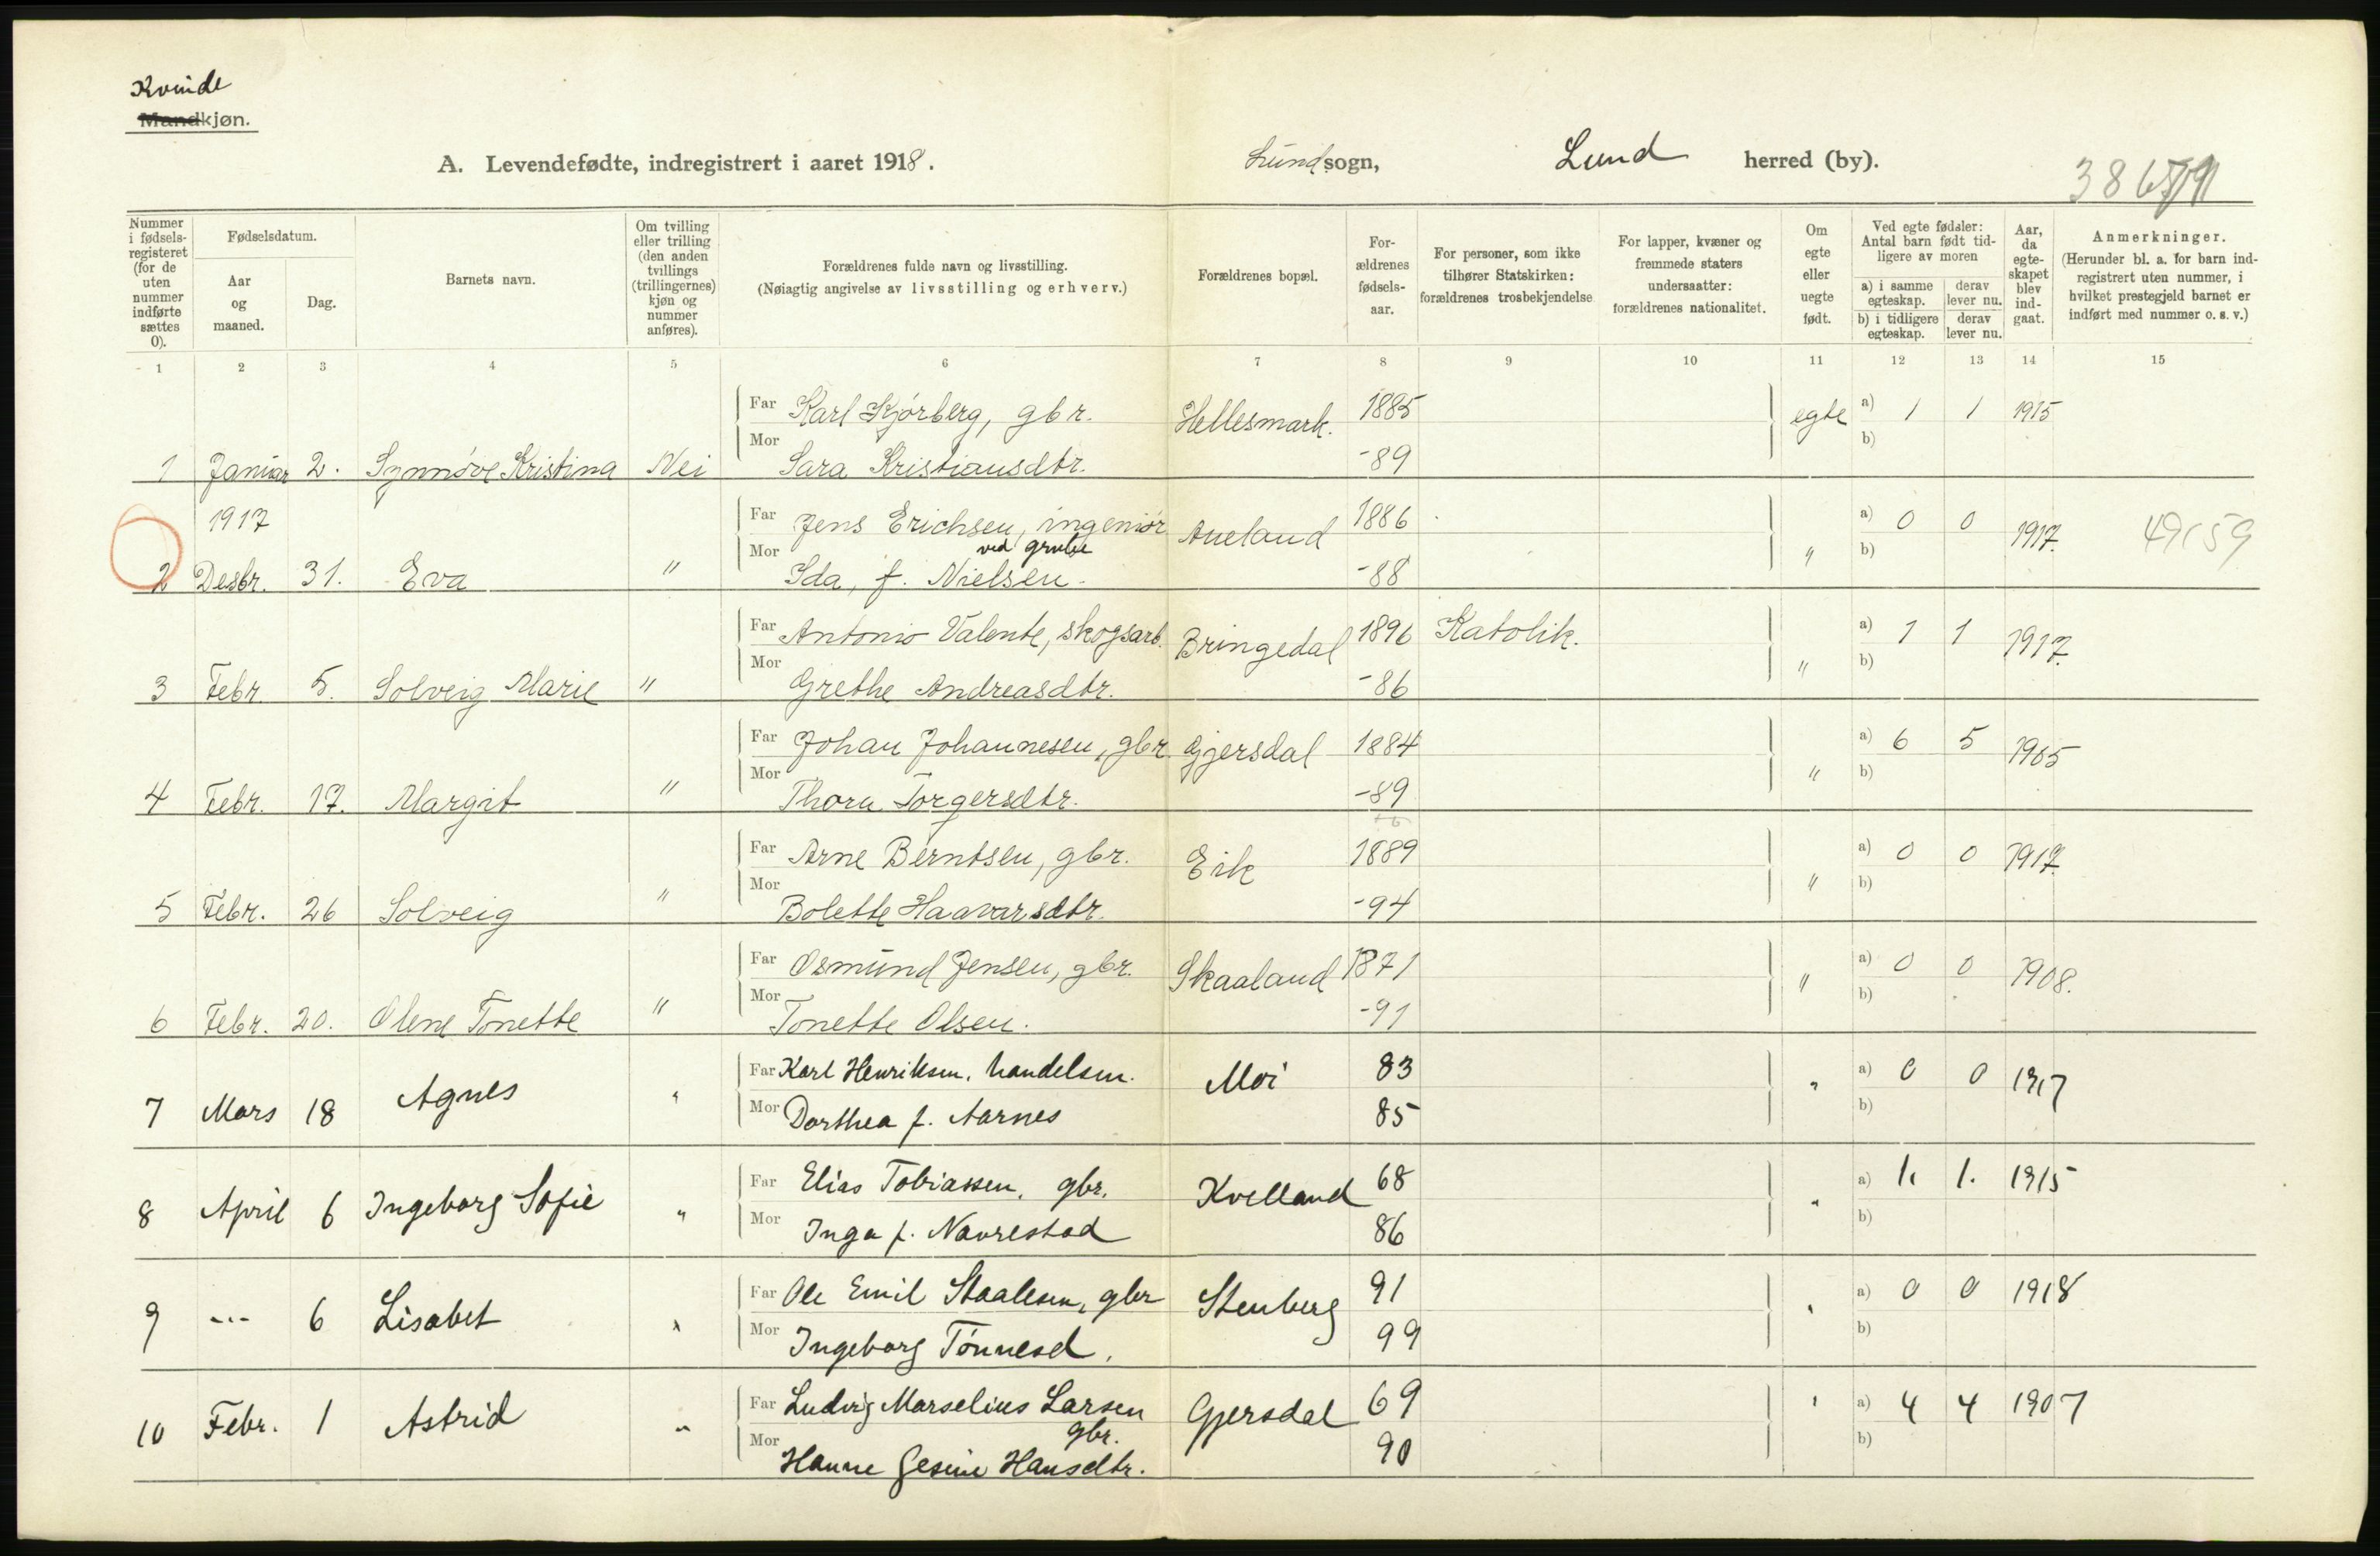 Kvinde
Mandkjøn.
A. Levendefødte, indregistrert i aaret 1918.
Lund sogn, Lund herred (by).
Nummer i fødsels-registeret (for de uten nummer indførte sættes 0).
Fødselsdatum.
Aar og maaned.
Dag.
Barnets navn.
Om tvilling eller trilling (den anden tvillings (trillingernes) kjøn og nummer anføres).
Forældrenes fulde navn og livsstilling.
(Nøiagtig angivelse av livsstilling og erhverv.)
Forældrenes bopæl.
For-ældrenes fødsels-aar.
For personer, som ikke tilhører Statskirken: forældrenes trosbekjendelse
For lapper, kvæner og fremmede staters undersaatter: forældrenes nationalitet.
Om egte eller uegte født.
Ved egte fødsler: Antal barn født tid-ligere av moren
a) i samme egteskap.
derav lever nu.
b) i tidligere egteskap.
derav lever nu.
Aar, da egte-skapet blev ind-gaat.
Anmerkninger.
(Herunder bl. a. for barn ind-registrert uten nummer, i hvilket prestegjeld barnet er indført med nummer o. s. v.)
1 2 3 4 5 6 7 8 9 10 11 12 13 14 15
Far Karl Kjørberg, gbr. Hellesmark. 1885 egte a) 1 1 1915
1 Januar 2. Synnøve Kristina Nei Mor Sara Kristiansdtr. -89 b)
1917 Far Jens Erichsen, ingeniør Aueland 1886 a) 0 0 1917. 49159
ved grube
2 Desbr. 31. Eva " Mor Ida, f. Nielsen. -88 " b)
Far Antonio Valente, skogsarb. Bringedal 1896 Katolik. a) 1 1 1917.
3 Febr. 5. Solveig Marie " Mor Grethe Andreasdtr. -86 " b)
Far Johan Johannesen, gbr. Gjersdal 1884 a) 6 5 1905
4 Febr. 17. Margit " Mor Thora Torgersdtr. -89 " b)
Far Arne Berntsen, gbr. Eik 1889 a) 0 0 1917.
5 Febr. 26 Solveig " Mor Bolette Haavarsdtr. -94 " b)
Far Osmund Jensen, gbr. Skaaland 1871 a) 0 0 1908.
6 Febr. 20. Olene Tonette " Mor Tonette Olsen. -91 " b)
Far Karl Henriksen, handelsm. Moi 83 a) 0 0 1917
7 Mars 18 Agnes " Mor Dorthea f. Aarnes 85 " b)
Far Elias Tobiassen, gbr. Kvelland 68 a) 1. 1. 1915
8 April 6 Ingeborg Sofie " Mor Inga f. Navrestad 86 " b)
Far Ole Emil Staalesen, gbr Stenberg 91 a) 0 0 1918
9 --- 6 Lisabet " Mor Ingeborg Tønnesd. 99 " b)
Far Ludvig Marselius Larsen Gjersdal 69 " a) 4 4 1907
gbr.
10 Febr. 1 Astrid " Mor Hanne Gesine Hansdtr. 90 b)